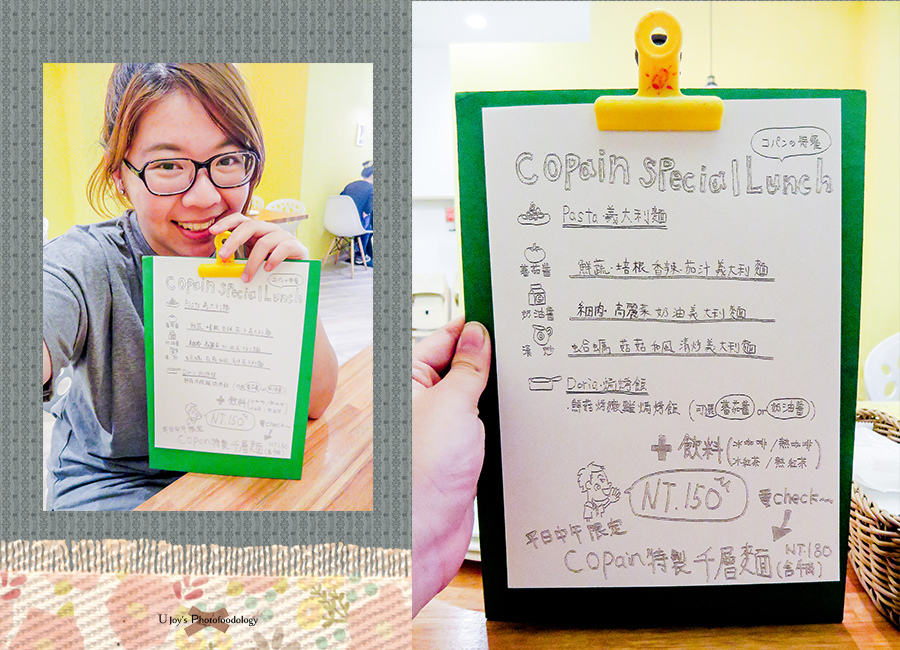 コパンの特餐
Copain Special Lunch
Pasta 義大利麵
蕃茄醬 鮮蔬·培根 香辣·茄汁義大利麵
奶油醬 細肉·高麗菜 奶油義大利麵
清炒 蛤蠣 菇菇 和風 清炒義大利麵
Doria·焗烤飯
·鮮菇烤嫩雞焗烤飯 (可選 蕃茄醬 or 奶油醬)
+ 飲料 (冰咖啡/熱咖啡
冰紅茶/熱紅茶)
NT.150
要check~
平日中午限定
Copain特製千層麵 NT.180
U Joy's Photofoodology